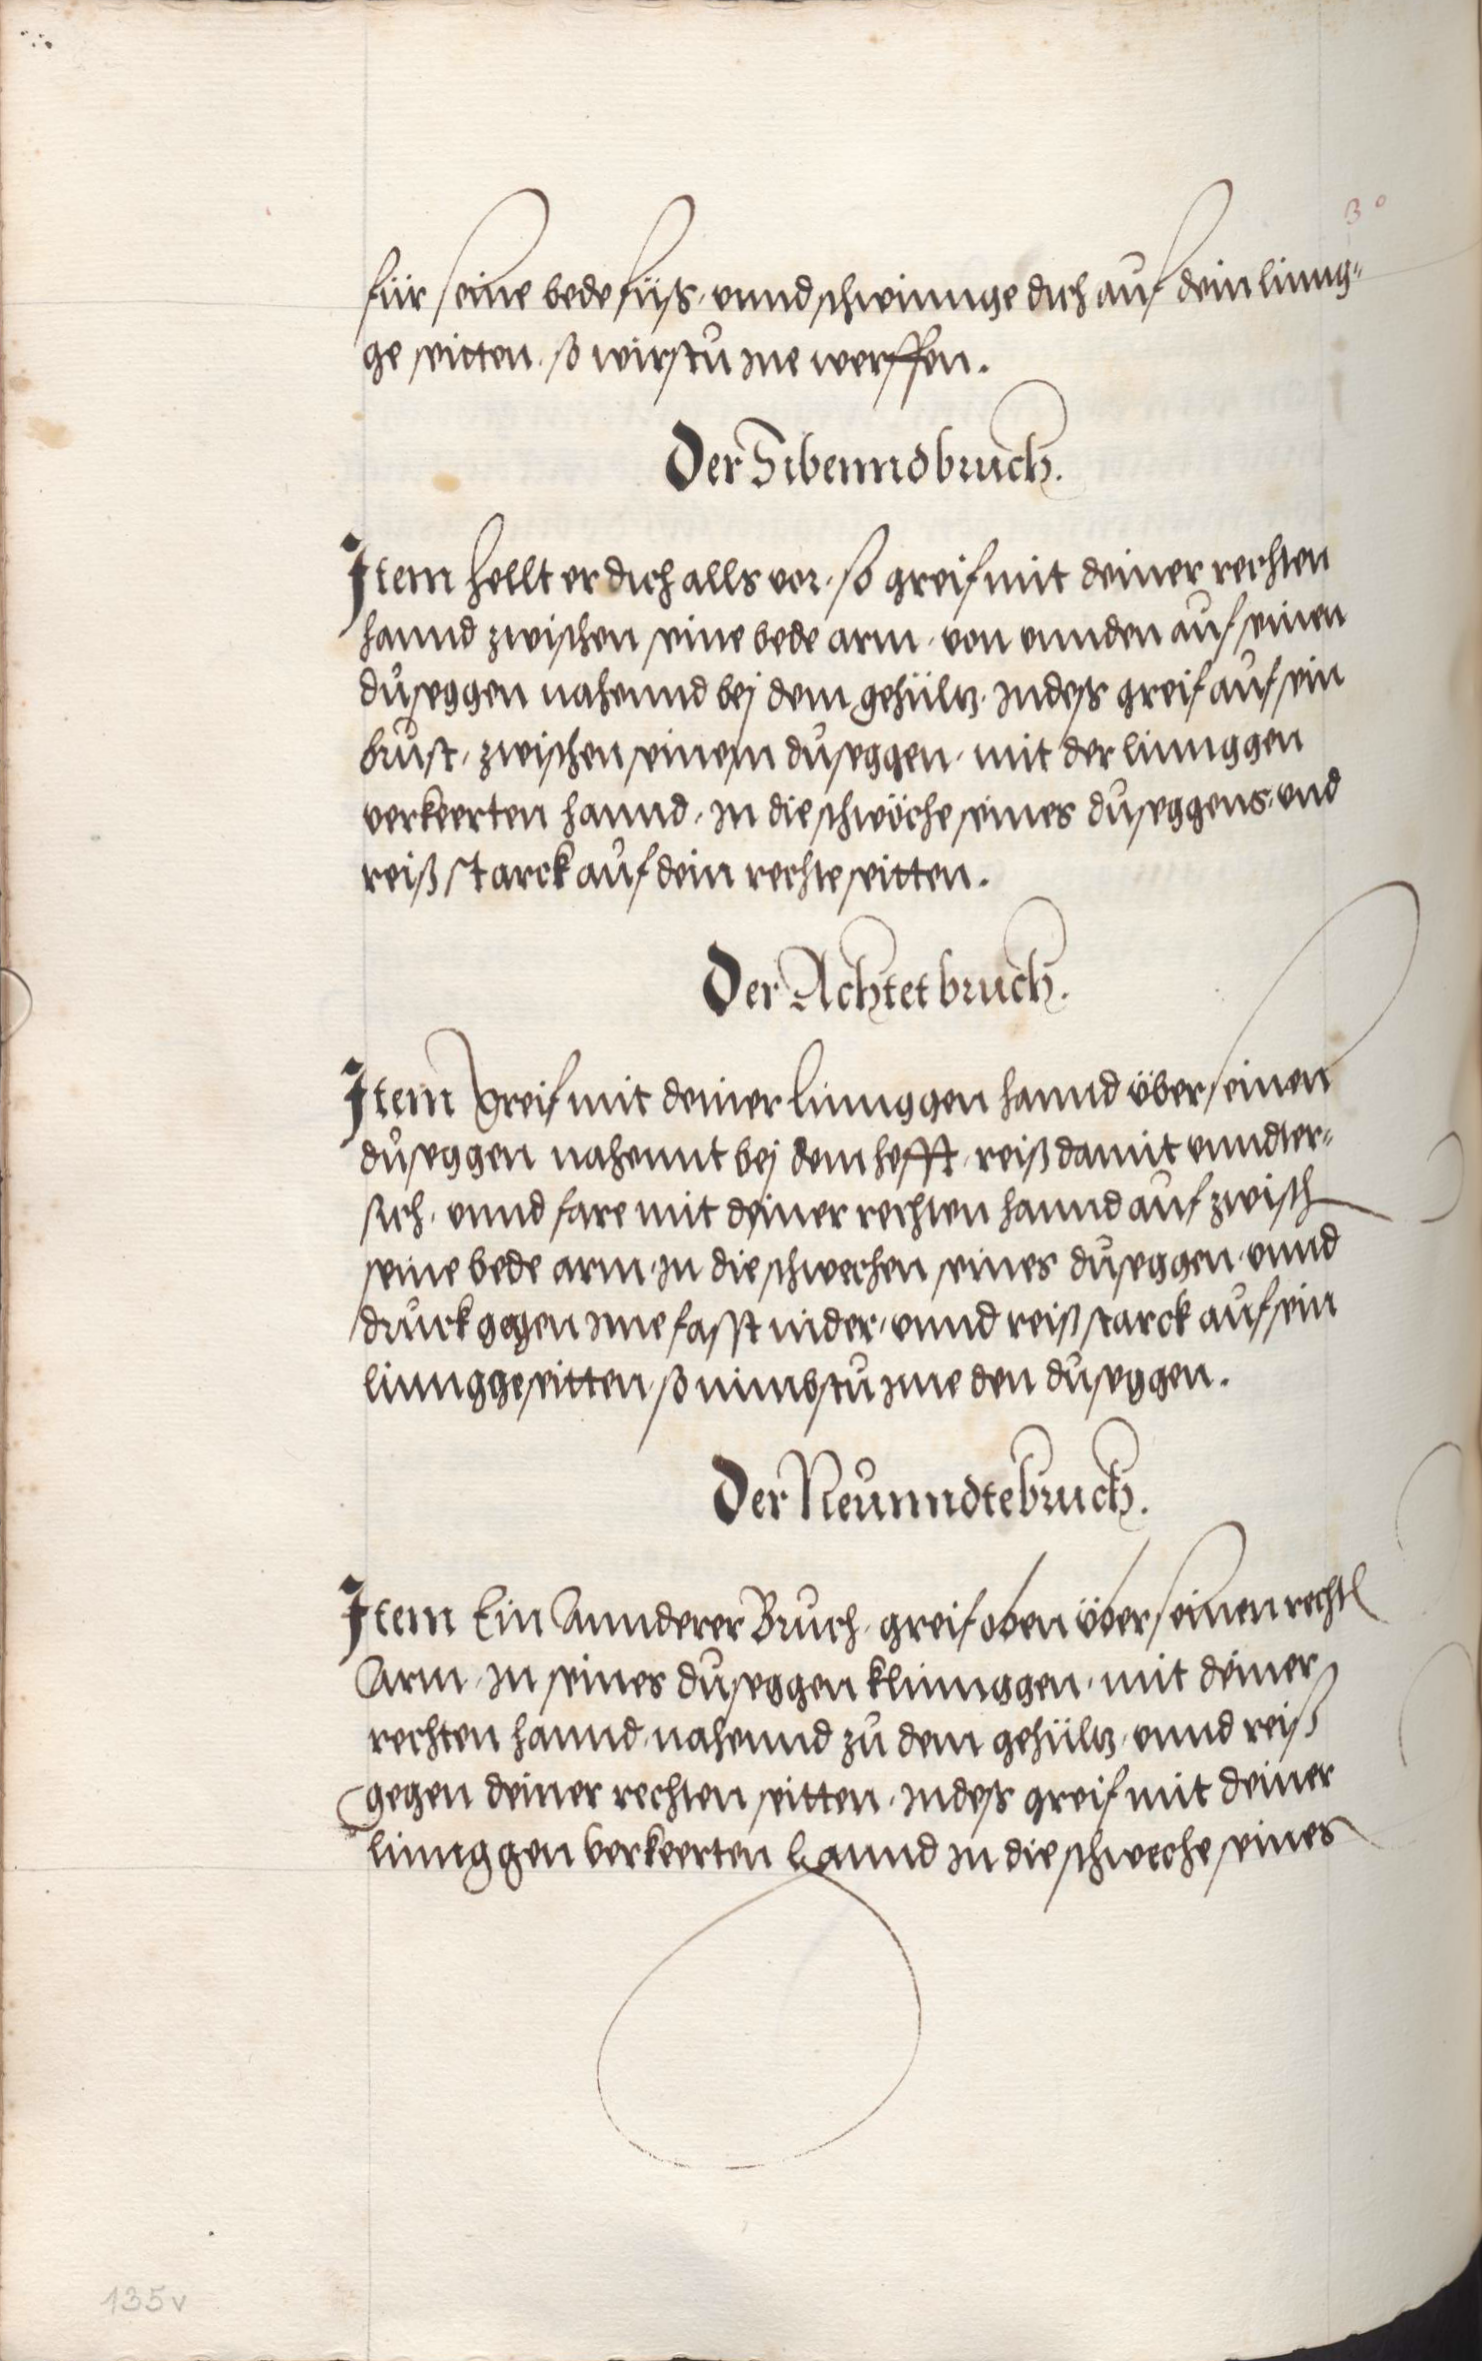 3o
für seine bede füß, vnnd schwinnge dich auf dein linng„
ge seitten. so wirstu jne werffen.
Der Sibennd bruch.
Item hellt er dich alls vor. so greif mit deiner rechten
hannd zwischen seine bede arm, von vnnden auf seinen
duseggen nahennd bej dem gehülz. jndeß greif auf sein
brust, zwischen seinem duseggen, mit der linnggen
verkeerten hannd, jn die schwöche seines duseggens, vnd
reiß starck auf dein rechte seitten.
Der Achtet bruch.
Item Greif mit deiner linnggen hannd über seinen
duseggen nahennt bej dem hefft, reiß damit vnndter„
sich, vnnd fare mit deiner rechten hannd auf zwisch
seine bede arm, jn die schwechen seines duseggen, vnnd
druck gegen jme fasst nider, vnnd reiß starck auf sein
linngge seitten so nimbstu jme den duseggen.
Der Neunndte bruch.
Item Ein Annderer Bruch, greif oben über seinen recht
Arm, jn seines duseggen klinnggen, mit deiner
rechten hannd, nahennd zu dem gehülz, vnnd reiß
gegen deiner rechten seitten, jndeß greif mit deiner
linnggen verkeerten hannd jn die schweche seines
135v